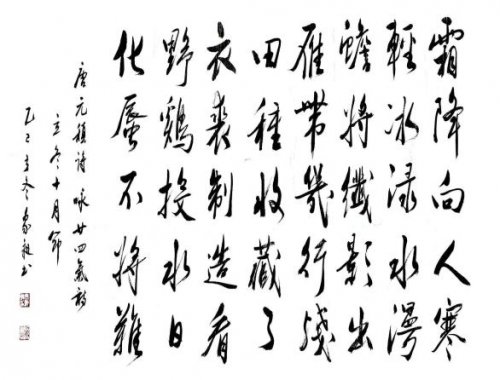 霜降向人寒
輕冰渌水漫
蟾將纖影出
雁帶幾行殘
田種收藏了
衣裘制造看
野鷄投水日
化蜃不將難
唐元稹詩詠廿四氣詩
立冬十月節
立冬家书